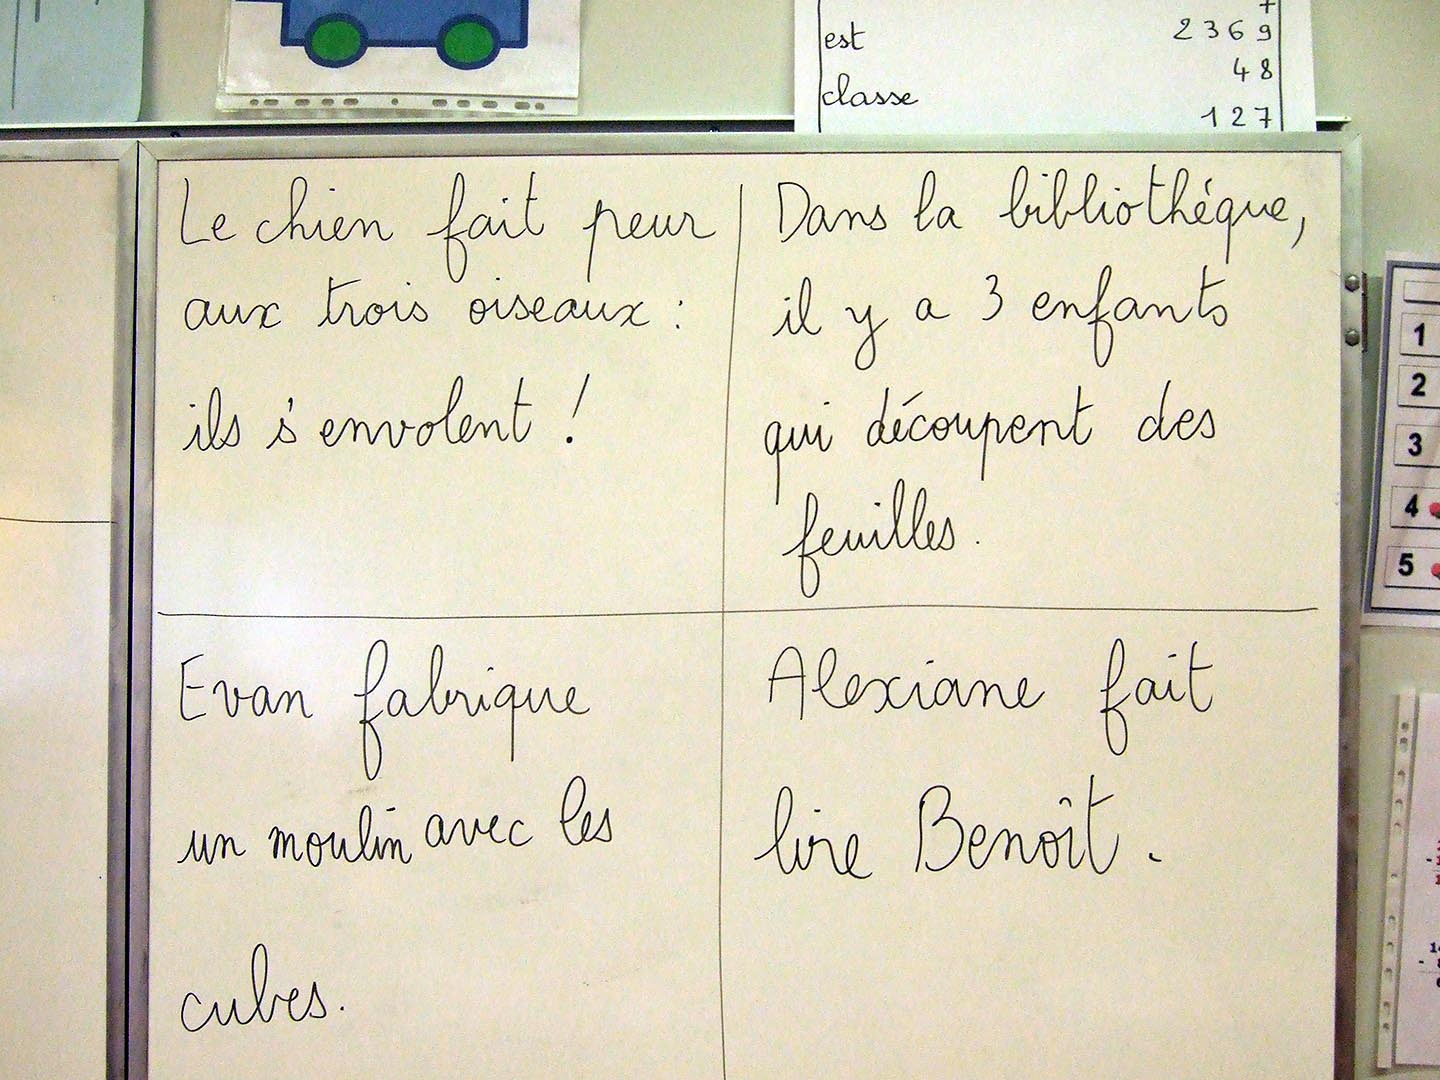 est
classe
+
2369
48
127
Le chien fait peur
aux trois oiseaux :
ils s'envolent !
Dans la bibliothéque,
il y a 3 enfants
qui découpent des
feuilles.
Evan fabrique
un moulin avec les
cubes.
Alexiane fait
lire Benoît.
1
2
3
4
5